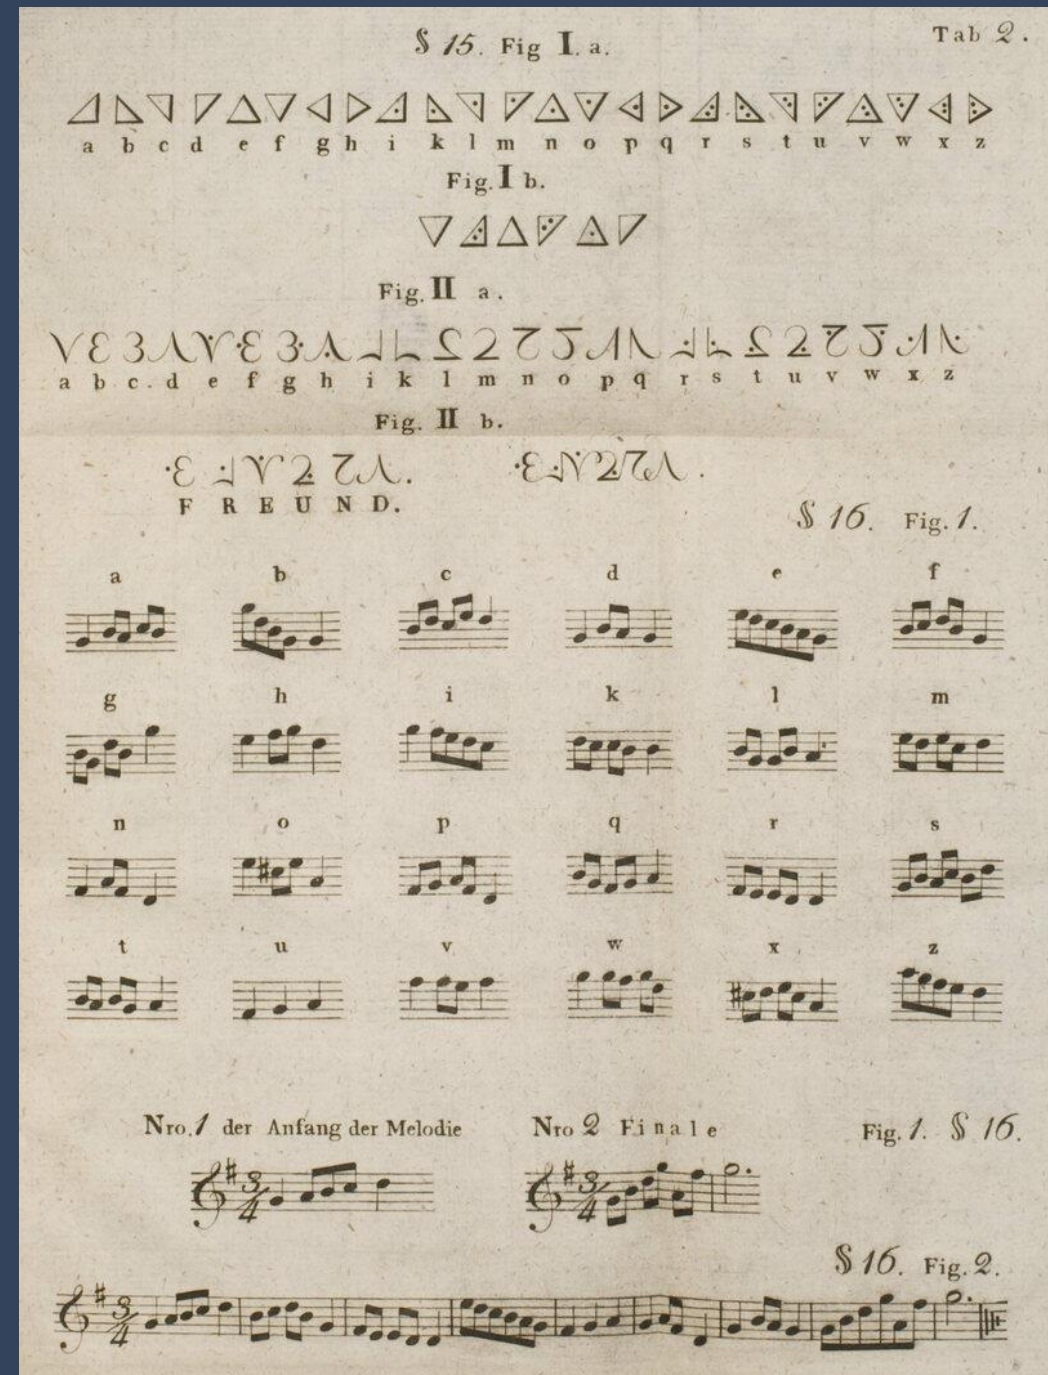 § 15. Fig I. a.
Tab 2.
a b c d e f g h i k l m n o p q r s t u v w x z
Fig. I b.
Fig. II a.
a b c. d e f g h i k l m n o p q r s t u v w x z
Fig. II b.
F R E U N D.
§ 16. Fig. 1.
a b c d e f
g h i k l m
n o p q r s
t u v w x z
Nro. 1 der Anfang der Melodie
Nro 2 Finale
Fig. 1. § 16.
3/4
3/4
§ 16. Fig. 2.
3/4